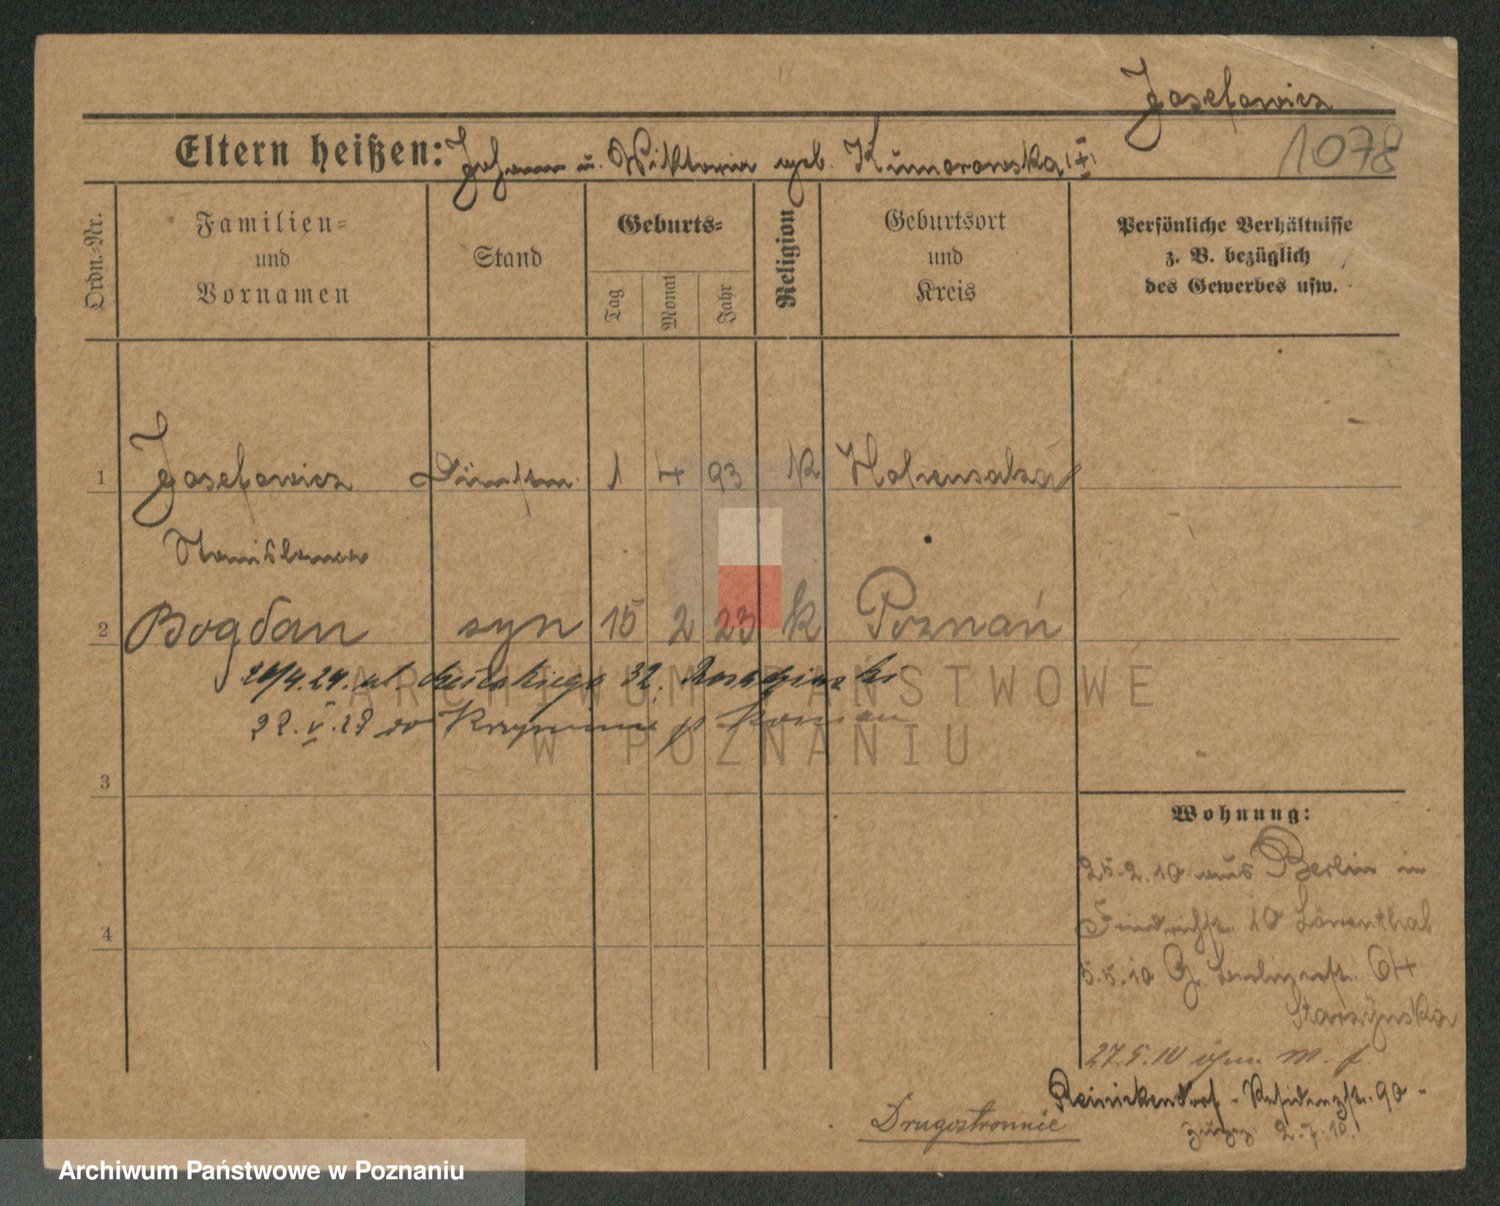 Josefowicz
Eltern heißen: Johann u. Wiktoria geb. Kumorowska (+)
1078
Ordn.-Nr.
Familien-
und
Vornamen
Stand
Geburts-
Tag
Monat
Jahr
Religion
Geburtsort
und
Kreis
Persönliche Verhältnisse
z. B. bezüglich
des Gewerbes usw.
1 Josefowicz Dienstm. 1 4 93 K Hohensalza
Stanislawa
2 Bogdan syn 15 2 23 k Poznań
24/4.24. ul. 32.
22.V.28 do p
ARCHIWUM PAŃSTWOWE
W POZNANIU
3
Wohnung:
25.2.10 aus Berlin in
Friedrichstr. 10 Löwenthal
4
5.5.10 G. Berlinerstr. 64
Starzynska
27.5.10
Reinickendorf - Residenzstr. 90 -
2.7.10.
Drugostronnie
Archiwum Państwowe w Poznaniu